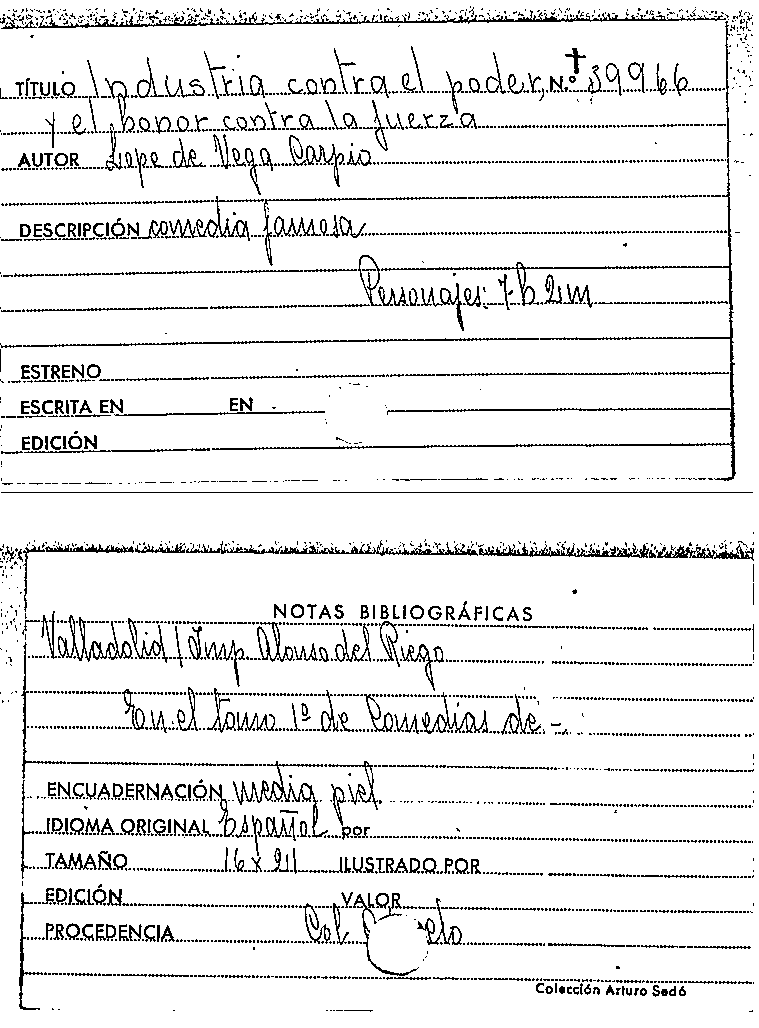 TÍTULO Industria contra el poder, N.º 39966
y el honor contra la fuerza
AUTOR Lope de Vega Carpio
DESCRIPCIÓN comedia famosa
Personajes: 7 h 2 m
ESTRENO
ESCRITA EN EN
EDICIÓN
NOTAS BIBLIOGRÁFICAS
Valladolid / Imp. Alonso del Riego
En el tomo 1º de Comedias de -
ENCUADERNACIÓN media piel
IDIOMA ORIGINAL Español por
TAMAÑO 16 x 21 ILUSTRADO POR
EDICIÓN VALOR
PROCEDENCIA Col.
Colección Arturo Sedó